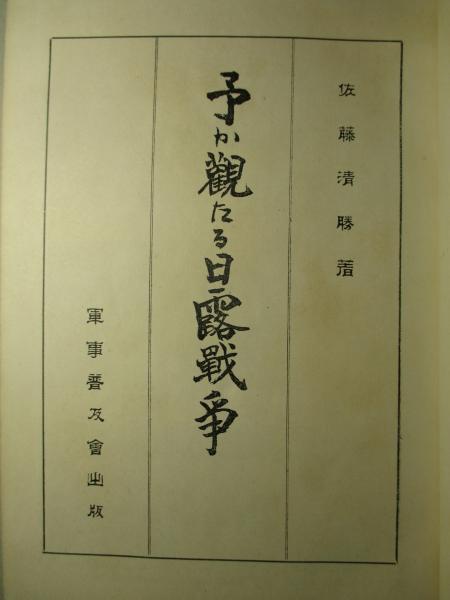 佐藤清勝著
予か觀たる日露戰爭
軍事普及會出版